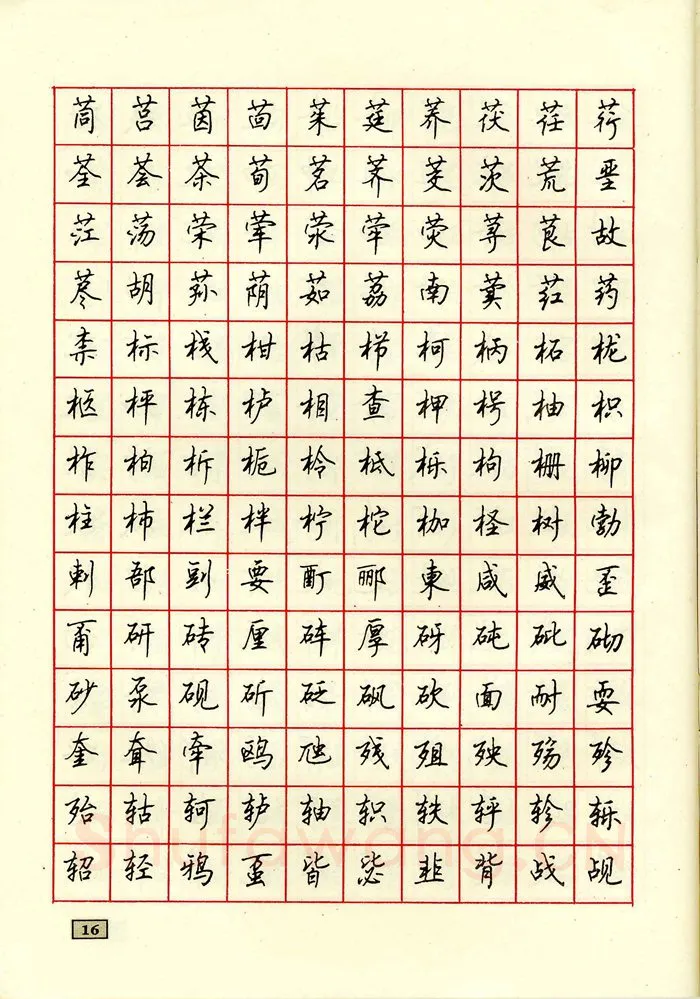 茼莒茵茴茱莛荞茯荏荇
荃荟茶荀茗荠茭茨荒垩
茳荡荣荤荥荦荧荨茛故
荩胡荪荫茹荔南荬荭药
柰标栈柑枯栉柯柄柘栊
柩枰栋栌相查柙枵柚枳
柞柏柝栀柃柢栎枸栅柳
柱柿栏柈柠柁枷柽树勃
剌郚剅要酊郦柬咸威歪
甭研砖厘砗厚砑砘砒砌
砂泵砚斫砭砜砍面耐耍
奎耷牵鸥虺残殂殃殇殄
殆轱轲轳轴轵轶轷轸轹
轺轻鸦虿皆毖韭背战觇
shufawang.CN
16